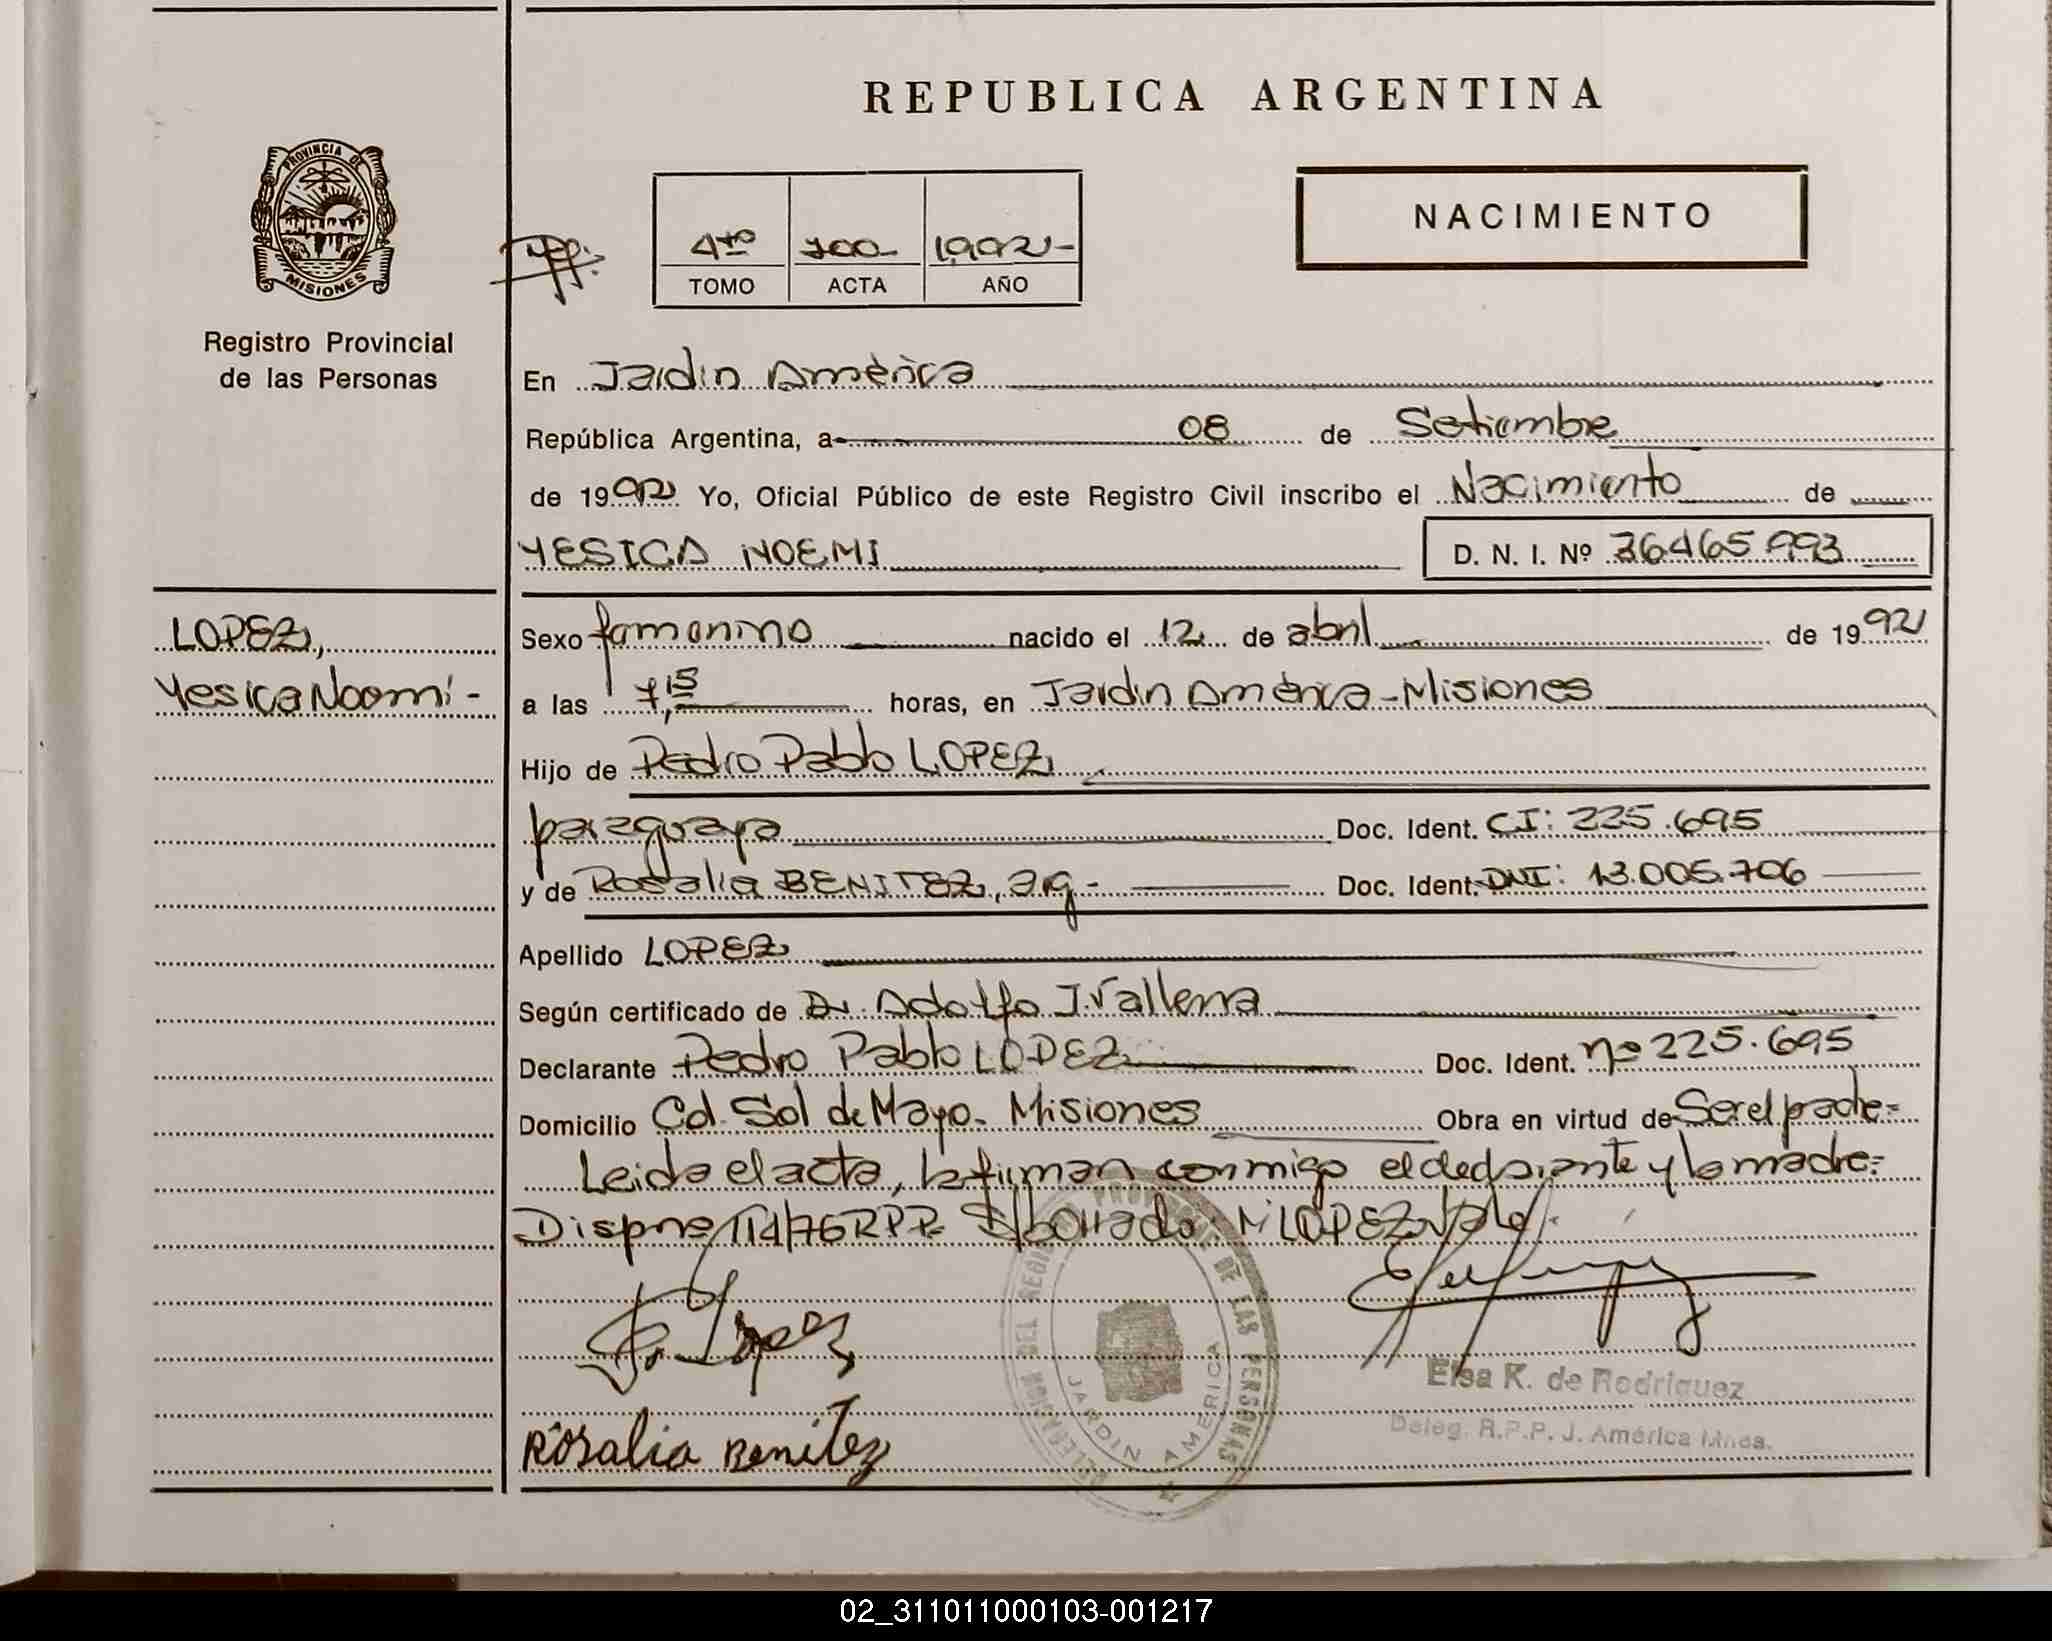 REPUBLICA ARGENTINA
PROVINCIA DE
MISIONES
Registro Provincial
de las Personas
NACIMIENTO
4to 700 1992-
TOMO ACTA AÑO
En Jardin América
República Argentina, a 08 de Setiembre
de 1992 Yo, Oficial Público de este Registro Civil inscribo el Nacimiento de
YESICA NOEMI D. N. I. Nº 36.465.993
LOPEZ,
Yesica Noemi-
Sexo femenino nacido el 12 de abril de 1992
a las 7,15 horas, en Jardin América-Misiones
Hijo de Pedro Pablo LOPEZ
paraguaya Doc. Ident. CI: 225.695
y de Rosalia BENITEZ, arg- Doc. Ident. DNI: 13.005.706
Apellido LOPEZ
Según certificado de Dr. Adolfo J. Vallerra
Declarante Pedro Pablo LOPEZ Doc. Ident. nº 225.695
Domicilio Cd. Sol de Mayo- Misiones Obra en virtud de Ser el padre=
Leida el acta, la firman conmigo el declarante y la madre=
114/76 RPP- S/borrado: LOPEZ Vale
Lopez
Rosalia Benitez
DELEGACION DEL REGISTRO PROVINCIAL DE LAS PERSONAS
JARDIN AMERICA
Elsa K. de Rodriguez
Deleg. R.P.P. J. América Mnes.
02_311011000103-001217